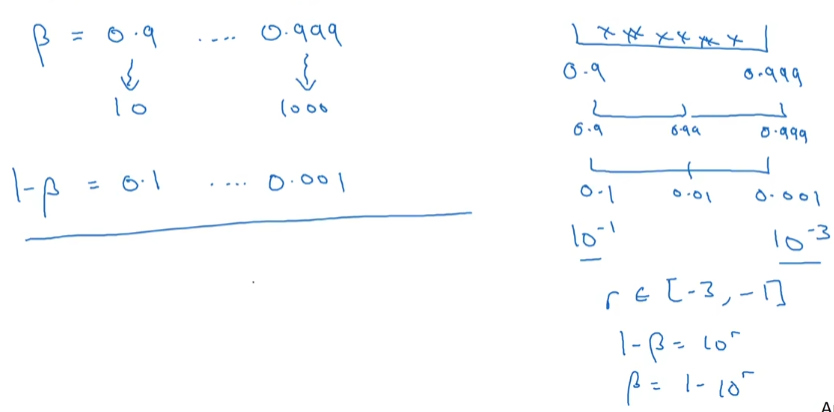 β = 0.9 .... 0.999
10 1000
1-β = 0.1 .... 0.001
0.9 0.999
0.9 0.99 0.999
0.1 0.01 0.001
10^-1 10^-3
r ∈ [-3, -1]
1-β = 10^r
β = 1-10^r